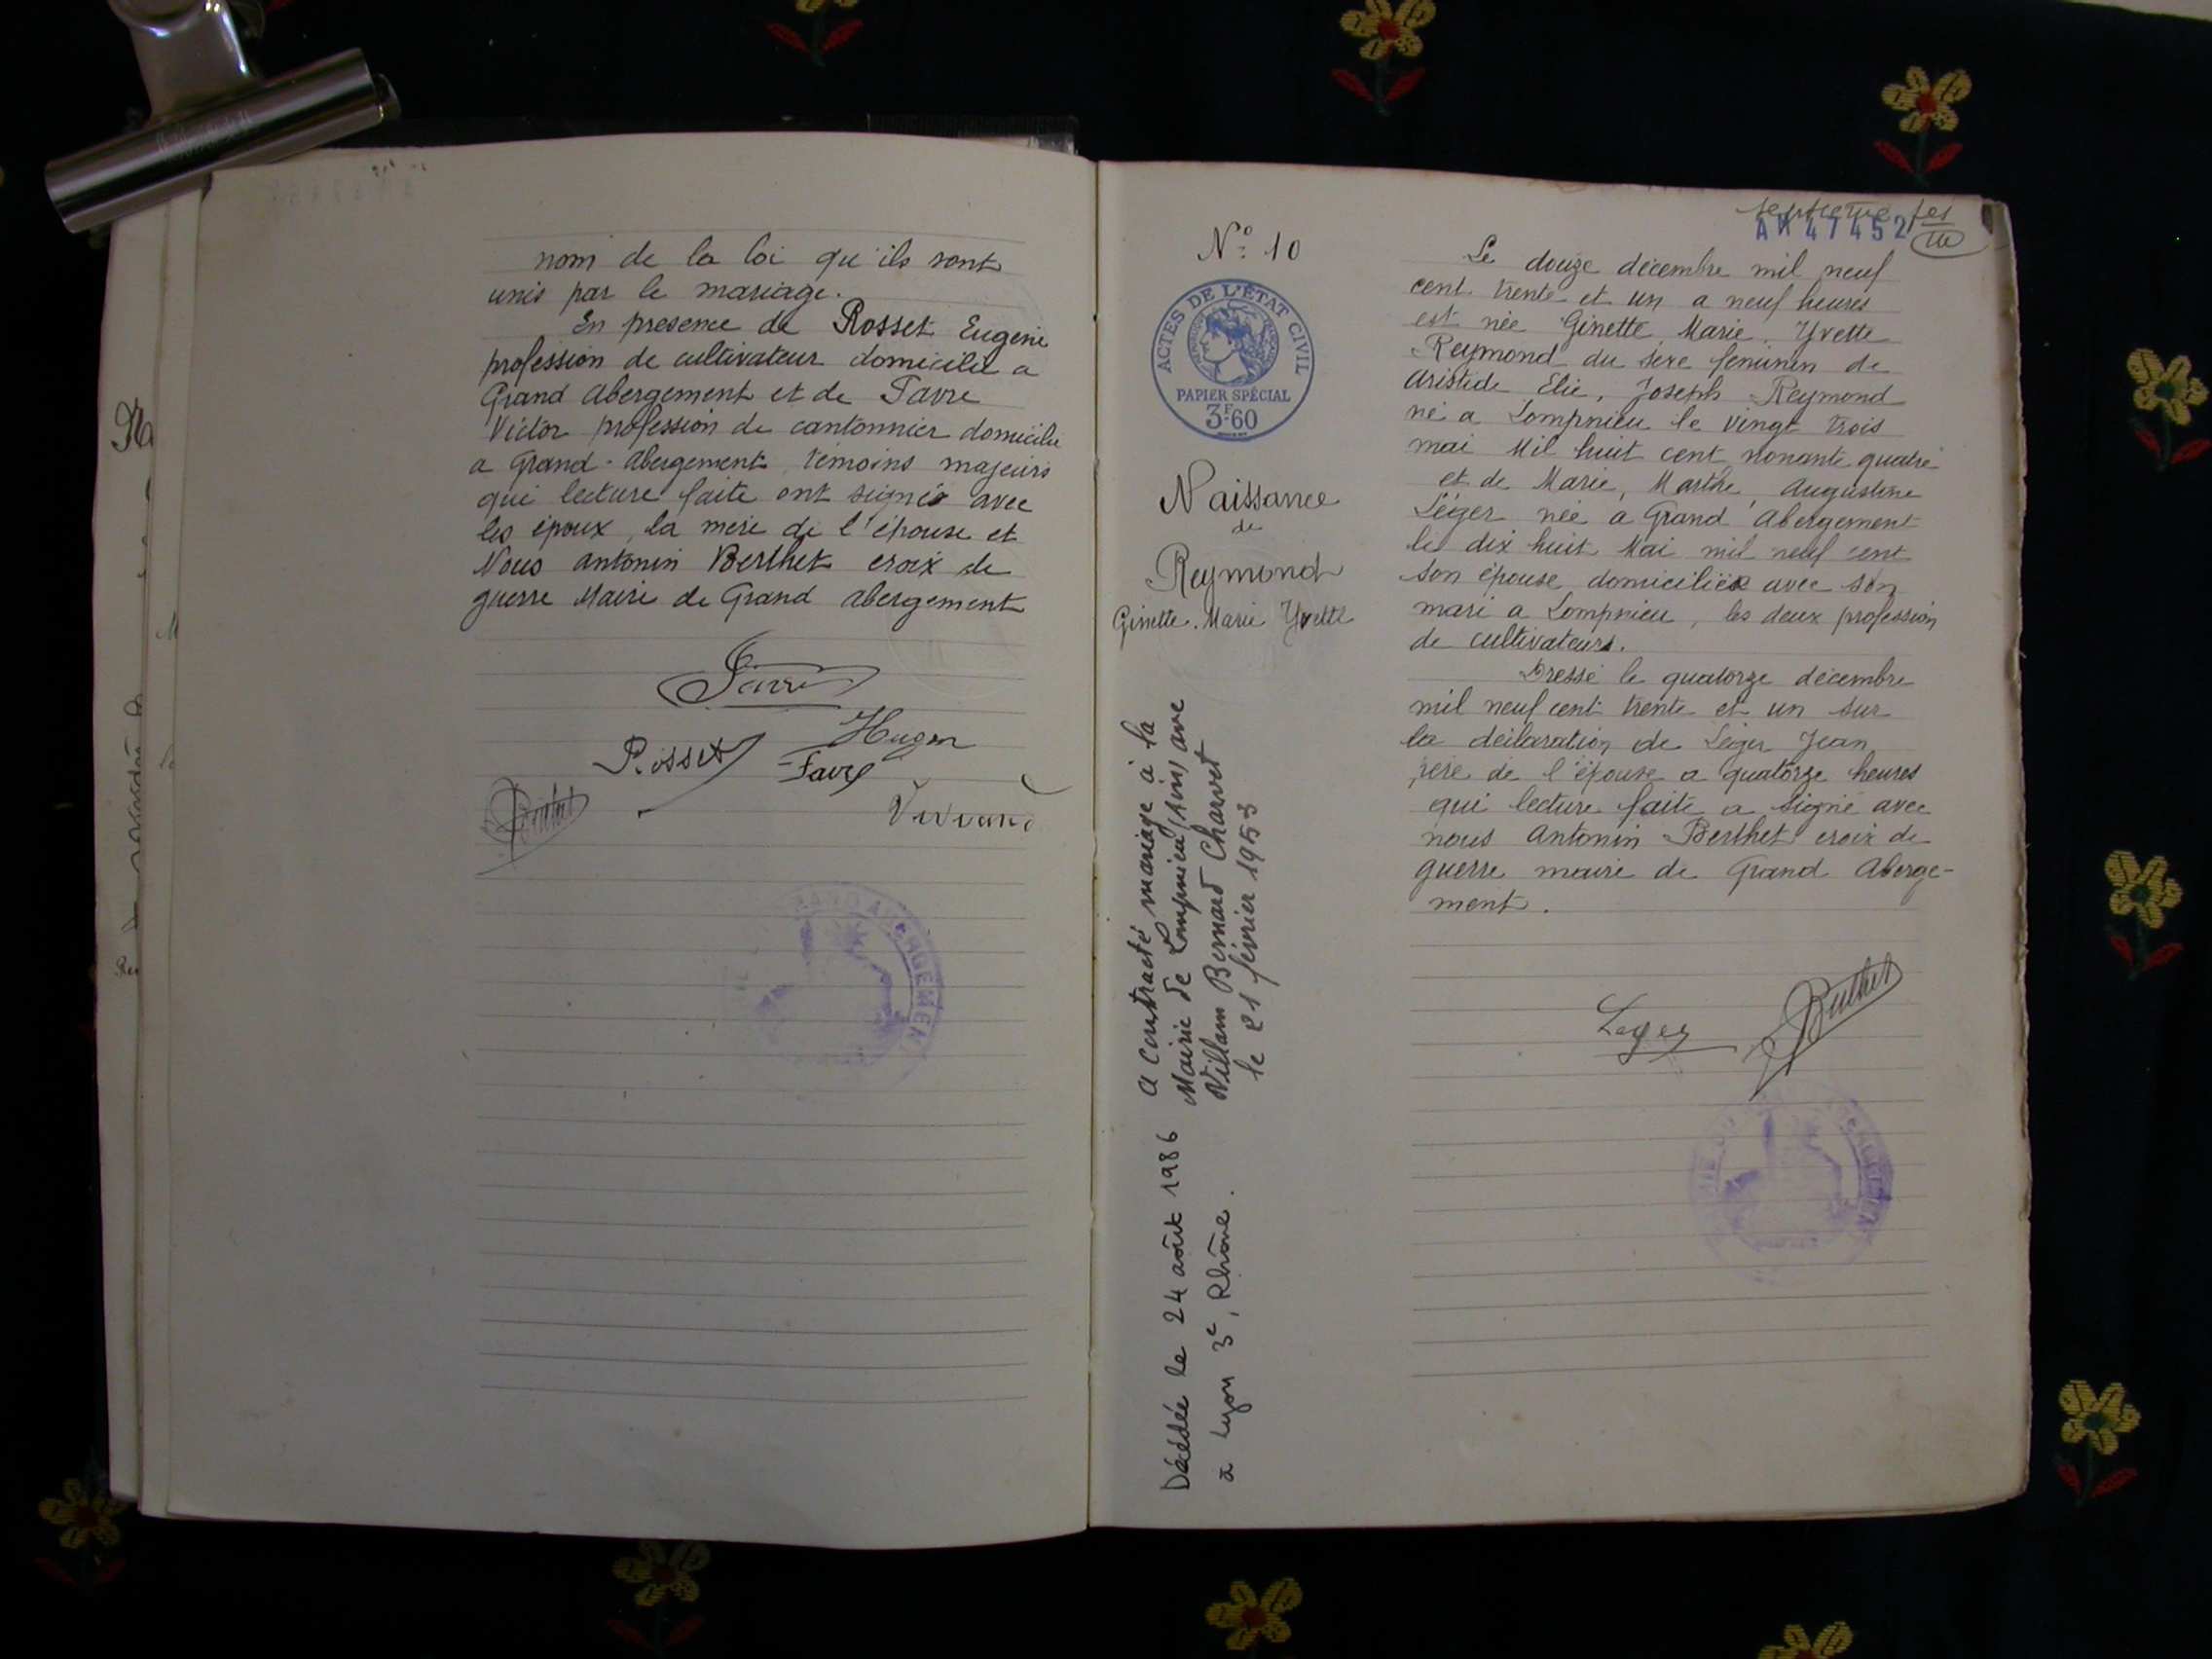 nom de la loi qu'ils sont
unis par le mariage.
En presence de Rosset Eugène
profession de cultivateur domicilié a
Grand Abergement et de Favre
Victor profession de cantonnier domicilié
a Grand-Abergement témoins majeurs
qui lecture faite ont signés avec
les époux, la mère de l'épouse et
Nous Antonin Berthet croix de
guerre Maire de Grand abergement
Favre
Hugon
Rosset
Favre
Berthet
Vuviand
ABERGEMENT
N° 10
ACTES DE L'ÉTAT CIVIL
PAPIER SPÉCIAL
3F.60
Naissance
de
Reymond
Ginette. Marie Yvette
a contracté mariage à la
Mairie de Lompnieu (Ain) avec
Bernard Charvet
le 21 février 1953
Décédée le 24 août 1986
à Lyon 3e, Rhône.
septième
AN 47452
Le douze décembre mil neuf
cent trente et un a neuf heures
est née Ginette, Marie, Yvette
Reymond du sexe féminin de
Aristide Elie, Joseph Reymond
né a Lompnieu le vingt trois
mai Mil huit cent nonante quatre
et de Marie, Marthe, Augustine
Léger née a Grand Abergement
le dix huit Mai mil neuf cent
son épouse domiciliée avec son
mari a Lompnieu, les deux profession
de cultivateurs.
Dressé le quatorze décembre
mil neuf cent trente et un sur
la déclaration de Léger Jean
père de l'épouse a quatorze heures
qui lecture faite a signé avec
nous Antonin Berthet croix de
guerre maire de Grand Aberge-
ment.
Leger
Berthet